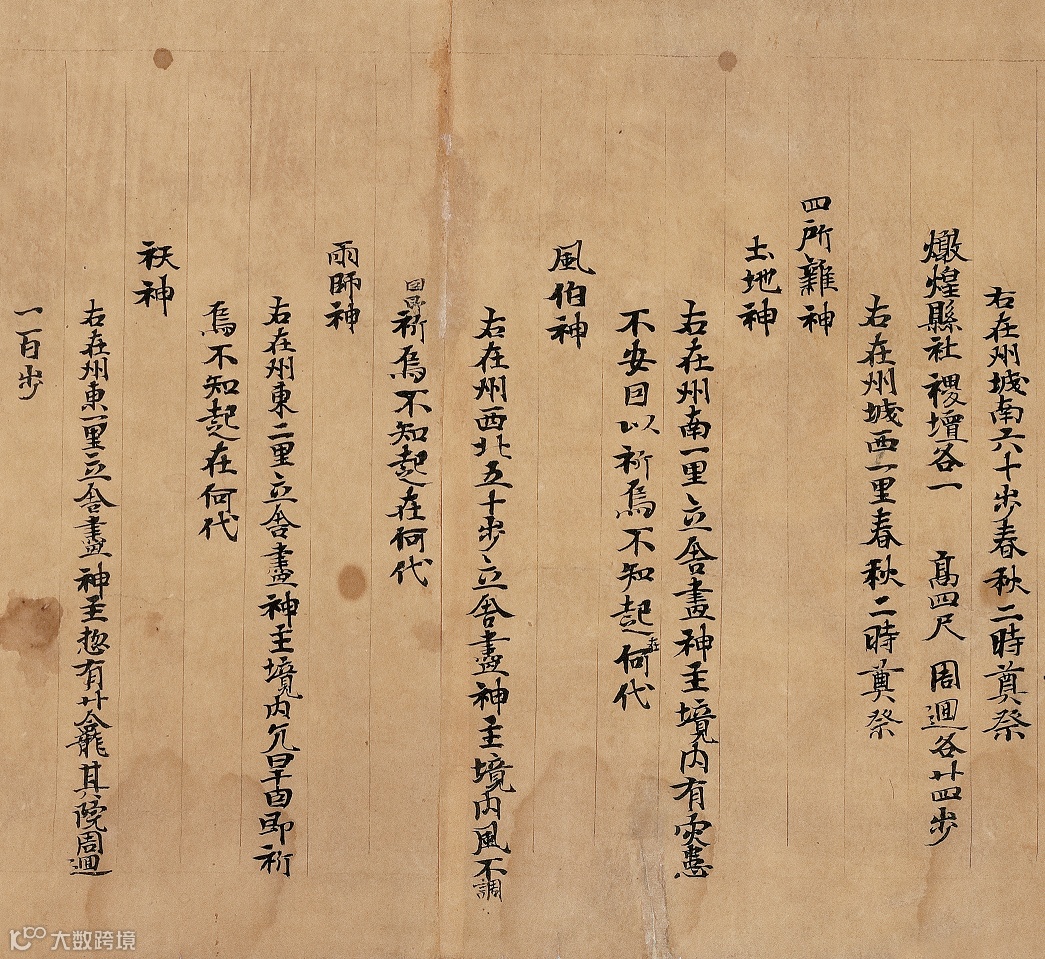 右在州城南六十步春秋二時奠祭
燉煌縣社稷壇各一 高四尺 周迴各廿四步
右在州城西一里春秋二時奠祭
四所雜神
土地神
右在州南一里立舍畫神主境內有灾患
不安因以祈焉不知起在何代
風伯神
右在州西北五十步立舍畫神主境內風不調
因即祈焉不知起在何代
雨師神
右在州東二里立舍畫神主境內亢旱因即祈
焉不知起在何代
祆神
右在州東一里立舍畫神主惣有廿龕其院周迴
一百步
大数跨境